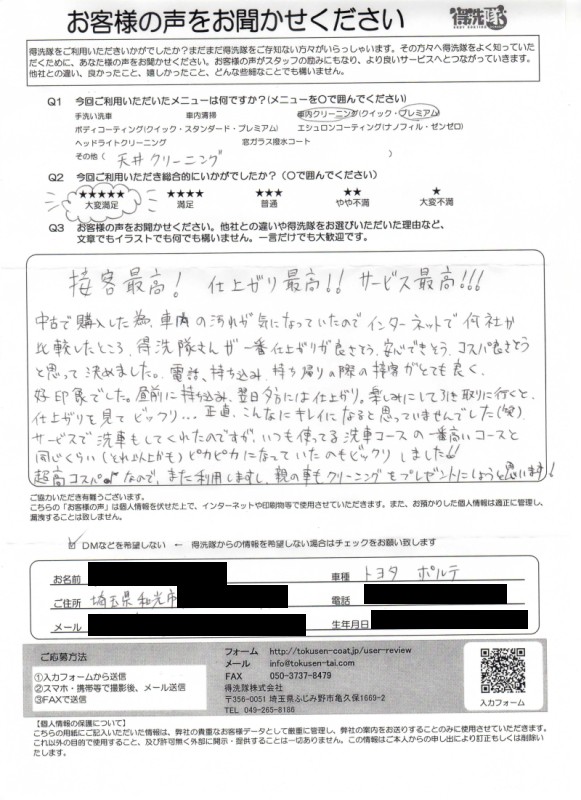 お客様の声をお聞かせください
得洗隊
得洗隊をご利用いただきいかがでしたか?まだまだ得洗隊をご存知ない方々がいらっしゃいます。その方々へ得洗隊をよく知っていた
だくために、あなた様の声をお聞かせください。お客様の声がスタッフの励みにもなり、より良いサービスへとつながっていきます。
他社との違い、良かったこと、嬉しかったこと、どんな些細なことでも構いません。
Q1 今回ご利用いただいたメニューは何ですか?(メニューを〇で囲んでください)
手洗い洗車 車内清掃 車内クリーニング(クイック・プレミアム)
ボディコーティング(クイック・スタンダード・プレミアム) エシュロンコーティング(ナノフィル・ゼンゼロ)
ヘッドライトクリーニング 窓ガラス撥水コート
その他( 天井クリーニング )
Q2 今回ご利用いただき総合的にいかがでしたか?(〇で囲んでください)
★★★★★ ★★★★ ★★★ ★★ ★
大変満足 満足 普通 やや不満 大変不満
Q3 お客様の声をお聞かせください。他社との違いや得洗隊をお選びいただいた理由など、
文章でもイラストでも何でも構いません。一言だけでも大歓迎です。
接客最高! 仕上がり最高!! サービス最高!!!
中古で購入した為、車内の汚れが気になっていたのでインターネットで何社か
比較したところ、得洗隊さんが一番仕上がりが良さそう、安心できそう、コスパ良さそう
と思って決めました。電話、持ち込み、持ち帰りの際の接客がとても良く、
好印象でした。昼前に持ち込み、翌日夕方には仕上がり。楽しみにして引き取りに行くと、
仕上がりを見てビックリ... 正直、こんなにキレイになると思っていませんでした(笑)
サービスで洗車もしてくれたのですが、いつも使ってる洗車コースの一番高いコースと
同じくらい(それ以上かも)ピカピカになっていたのもビックリしました!!
超高コスパ♪なので、また利用しますし、親の車もクリーニングをプレゼントにしようと思います!
ご協力いただき有難うございます。
こちらの「お客様の声」は個人情報を伏せた上で、インターネットや印刷物等で使用させていただきます。また、お預かりした個人情報は適正に管理し、
漏洩することは致しません。
☑ DMなどを希望しない ← 得洗隊からの情報を希望しない場合はチェックをお願い致します
お名前 車種 トヨタ ポルテ
ご住所 埼玉県和光市 電話
メール 生年月日
ご応募方法
①入力フォームから送信
②スマホ・携帯等で撮影後、メール送信
③FAXで送信
フォーム http://tokusen-coat.jp/user-review
メール info@tokusen-tai.com
FAX 050-3737-8479
得洗隊株式会社
〒356-0051 埼玉県ふじみ野市亀久保1669-2
TEL 049-265-8188
入力フォーム
【個人情報の保護について】
こちらの用紙にご記入いただいた情報は、弊社の貴重なお客様データとして厳重に管理し、弊社の案内をお送りすることのみに使用させていただきます。
これ以外の目的で使用すること、及び許可無く外部に開示・提供することは一切ありません。この情報はご本人からの申し出により訂正もしくは削除い
たします。